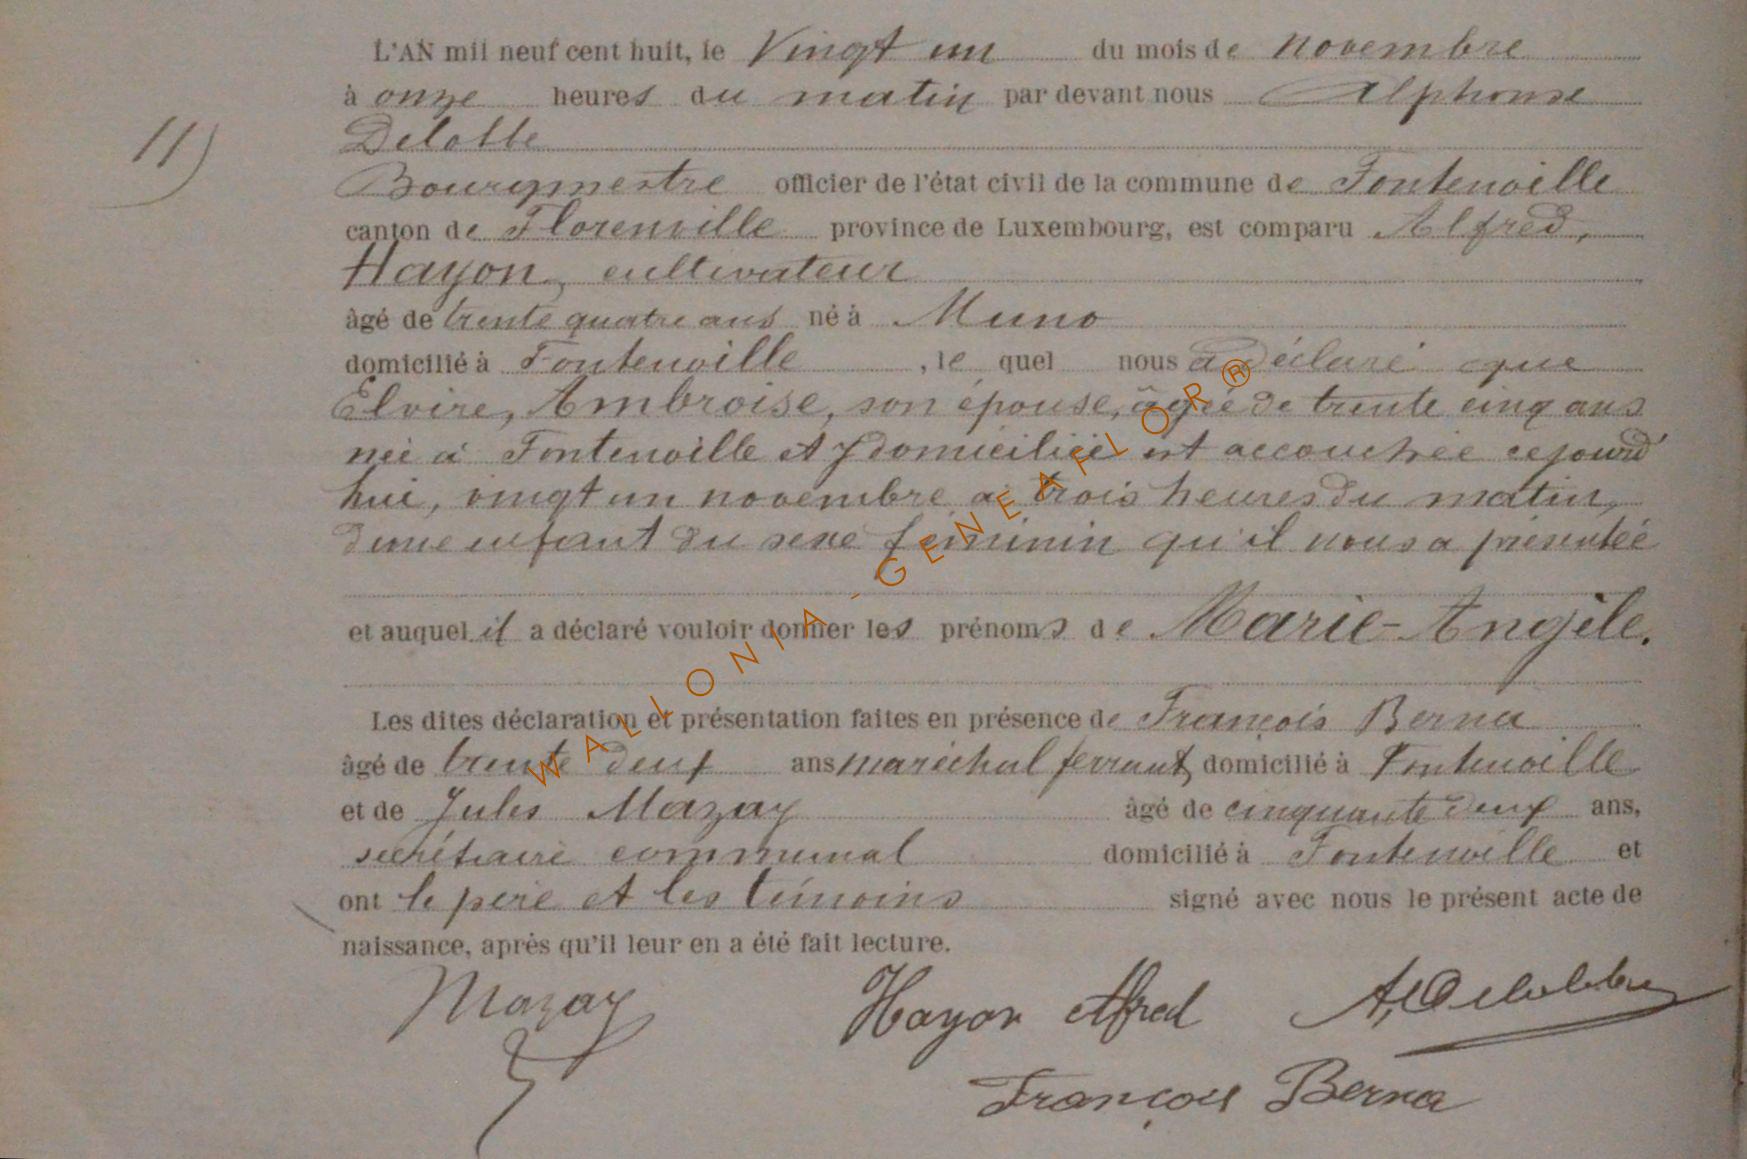 L'AN mil neuf cent huit, le Vingt un du mois de novembre
à onze heures du matin par devant nous Alphonse
11)
Delobbe
Bourgmestre officier de l'état civil de la commune de Fontenoille
canton de Florenville province de Luxembourg, est comparu Alfred,
Hayon, cultivateur
âgé de trente quatre ans né à Muno
domicilié à Fontenoille , le quel nous a déclaré que
Elvire, Ambroise, son épouse, âgée de trente cinq ans
née à Fontenoille et y domiciliée est accouchée cejourd'
hui, vingt un novembre à trois heures du matin,
d'une enfant du sexe féminin qu'il nous a présentée
et auquel il a déclaré vouloir donner les prénoms de Marie-Angèle.
Les dites déclaration et présentation faites en présence de François Berna
âgé de trente deux ans maréchal ferrant, domicilié à Fontenoille
et de Jules Mazay âgé de cinquante deux ans,
secrétaire communal domicilié à Fontenoille et
ont le père et les témoins signé avec nous le présent acte de
naissance, après qu'il leur en a été fait lecture.
Mazay Hayon Alfred A, Delobbe
François Berna
WALLONIA - GENEAFLOR ®